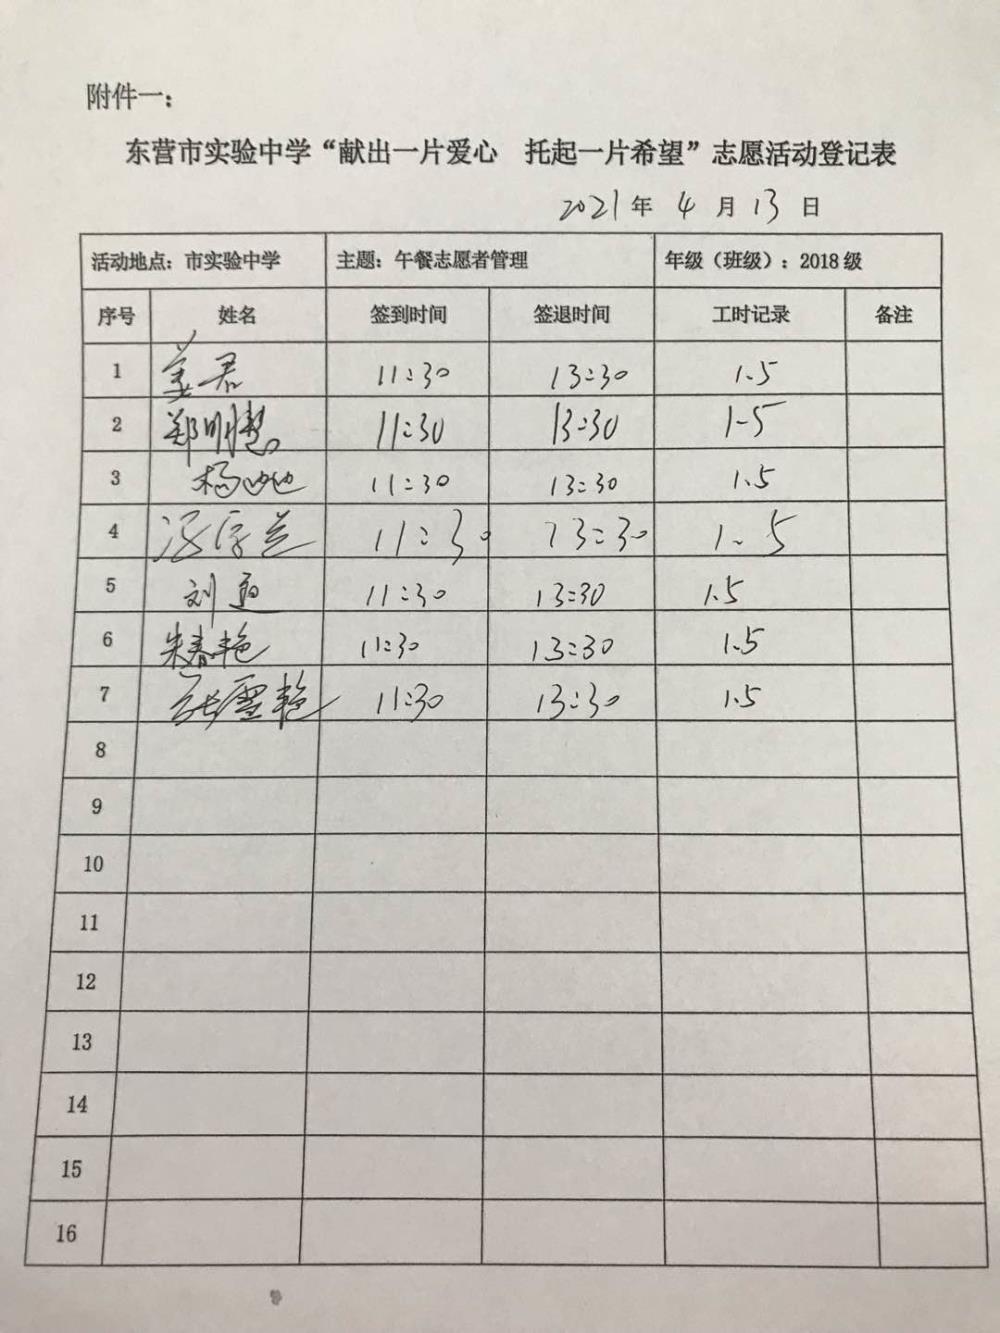 附件一：
东营市实验中学“献出一片爱心　托起一片希望”志愿活动登记表
2021 年 4 月 13 日
活动地点：市实验中学 主题：午餐志愿者管理 年级（班级）：2018 级
序号 姓名 签到时间 签退时间 工时记录 备注
1 姜君 11:30 13:30 1.5
2 郑明慧 11:30 13:30 1-5
3 杨 11:30 13:30 1.5
4 11:30 13:30 1.5
5 刘 11:30 13:30 1.5
6 朱春艳 11:30 13:30 1.5
7 张雪艳 11:30 13:30 1.5
8
9
10
11
12
13
14
15
16